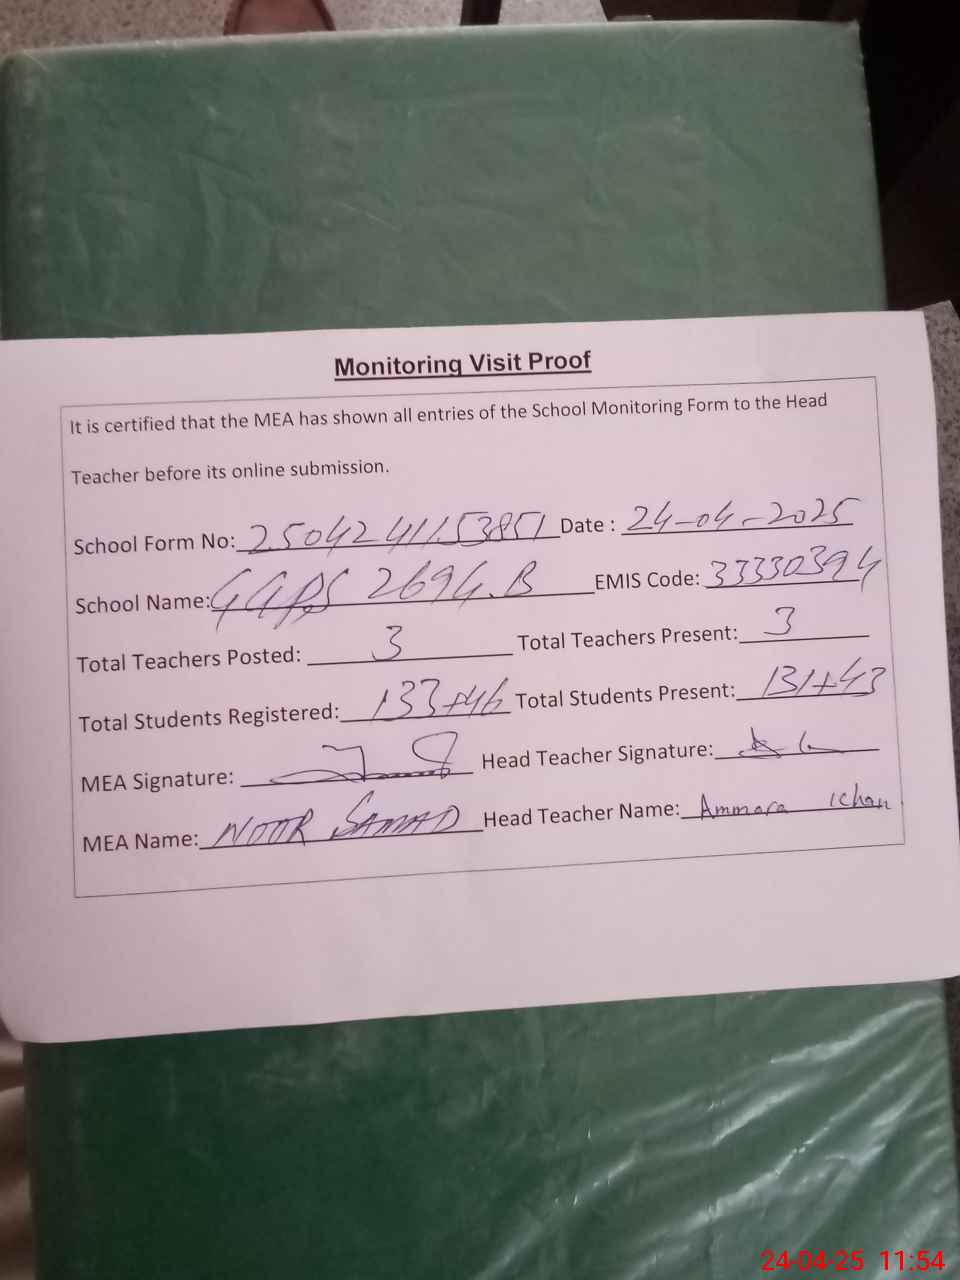 Monitoring Visit Proof
It is certified that the MEA has shown all entries of the School Monitoring Form to the Head
Teacher before its online submission.
School Form No: 25042411153851 Date : 24-04-2025
School Name: GGPS 269 G.B EMIS Code: 33330394
Total Teachers Posted: 3 Total Teachers Present: 3
Total Students Registered: 133+46 Total Students Present: 131+43
MEA Signature: Head Teacher Signature:
MEA Name: NOOR SAMAD Head Teacher Name: Ammara Khan
24-04-25 11:54